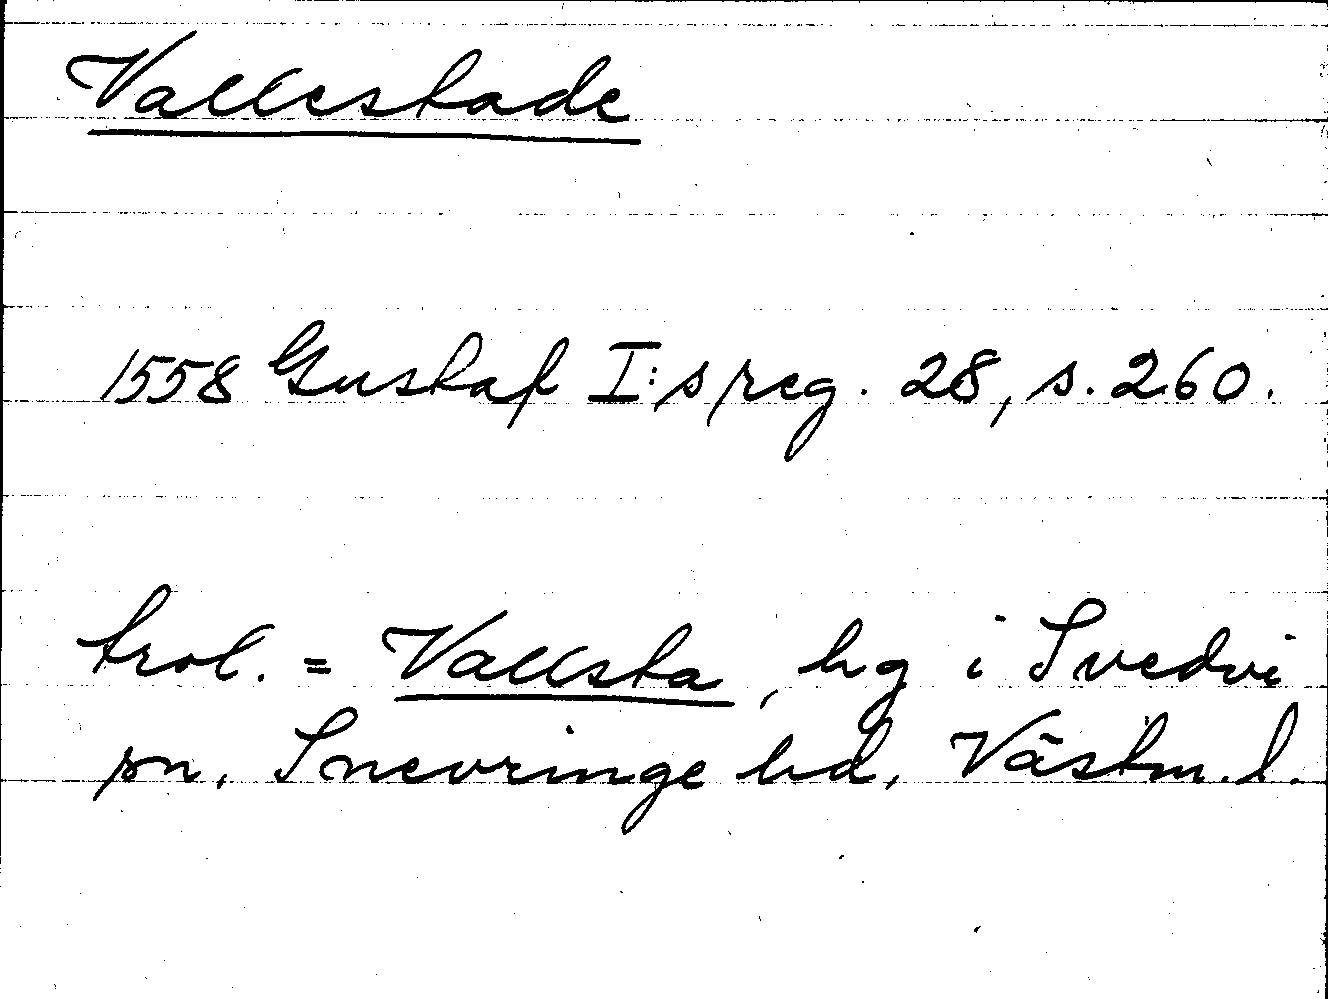 Vallestade
1558 Gustaf I:s reg. 28, s. 260.
trol. = Vallsta, hg i Svedvi
sn, Snevringe hd, Västm. l.